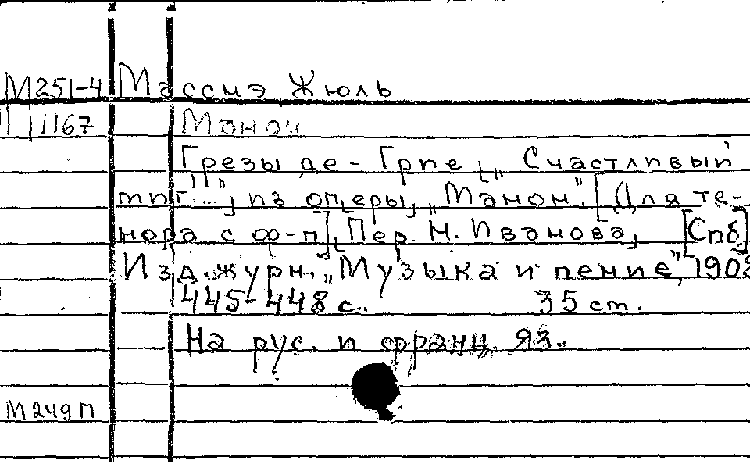 М251-4 Массмэ Жюль
1167 Манон
Грезы де-Грие „Счастливый
миг...", из оперы „Манон". [Для те-
нора с ф-п]. Пер. М. Иванова, [Спб]
Изд. журн. „Музыка и пение", 1908
445-448 с. 35 см.
На рус. и франц. яз.
М249п